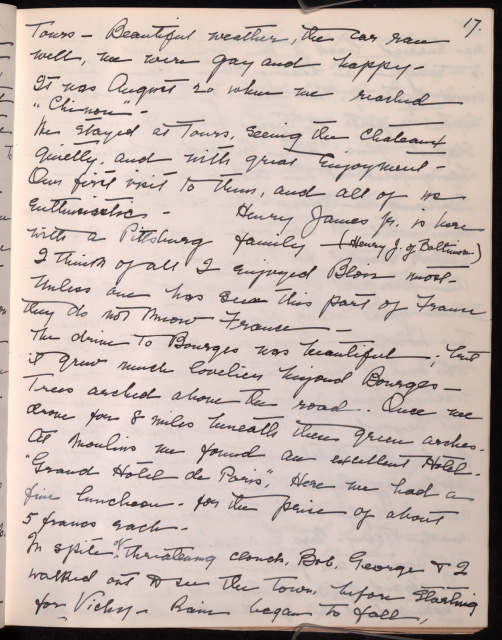 17.
Tours – Beautiful weather, the car ran
well, we were gay and happy –
It was August 20 when we reached
"Chinon" –
We stayed at Tours, seeing the Chateaux
quietly, and with great enjoyment –
Our first visit to them, and all of us
enthusiastic – Henry James Jr. is here
with a Pittsburg family – (Henry J. of Baltimore.)
I think of all I enjoyed Blois most –
Unless one has seen this part of France
they do not know France –
The drive to Bourges was beautiful; but
it grew much lovelier beyond Bourges –
Trees arched above the road. Once we
drove for 8 miles beneath these green arches.
At Moulins we found an excellent Hotel.
"Grand Hotel de Paris", Here we had a
fine luncheon. for the price of about
5 francs each –
In spite of threatening clouds, Bob, George & I
walked out to see the town, before starting
for Vichy – Rain began to fall,